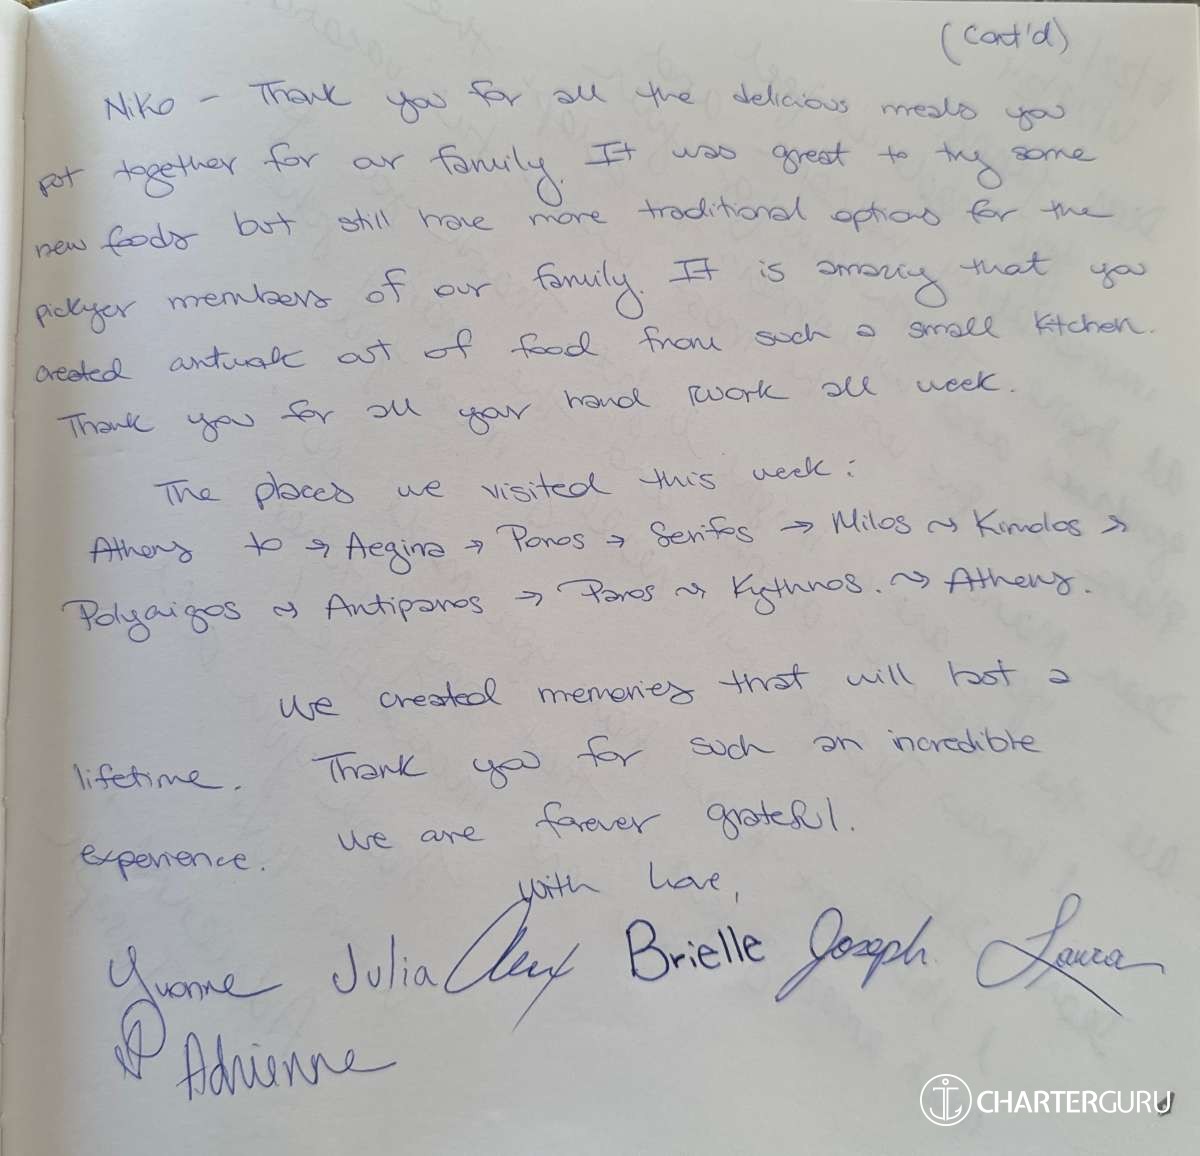 (Cont'd)
Niko - Thank you for all the delicious meals you
put together for our family. It was great to try some
new foods but still have more traditional options for the
pickyer members of our family. It is amazing that you
created artwork out of food from such a small kitchen.
Thank you for all your hard work all week.
The places we visited this week:
Athens to → Aegina → Poros → Serifos → Milos → Kimolos →
Polyaigos → Antiparos → Paros → Kythnos. → Athens.
We created memories that will last a
lifetime. Thank you for such an incredible
experience. We are forever grateful.
With love,
Yvonne Julia Alex Brielle Joseph Laura
& Adrienne
CHARTERGURU